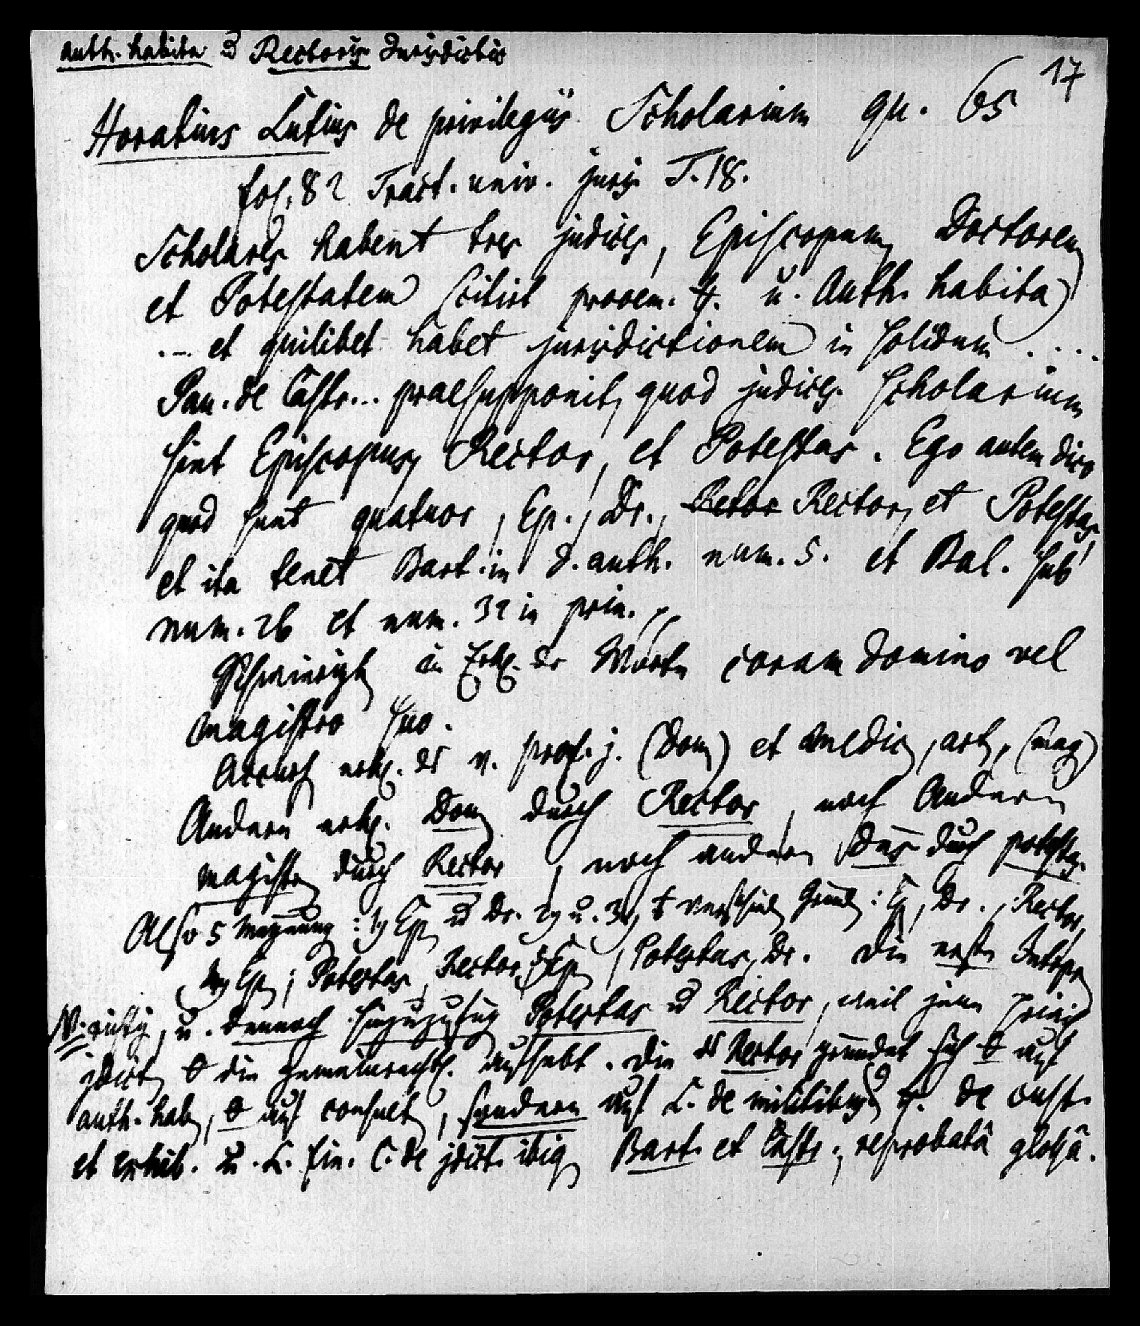 auth. habita u Rectoris Jurisdictio
17
Horatius Lutius de privilegiis Scholarium qu. 65
fol. 82 Tract. univ. juris T. 18.
Scholares habent tres judices, Episcopum, Doctorem
et Potestatem prooem. ff. u. Auth. habita
.– et quilibet habet jurisdictionem in solidum ....
Pau. de Castr... praesupponit, quod judices scholarium
sint Episcopus, Rector, et Potestas. Ego autem dico
quod sunt quatuor, Ep., Dr., Rector, et Potestas,
et ita tenet Bart. in d. auth. num. 5. et Bal. sub
num. 26 et num. 32 in prin.
in der Worte coram domino vel
magistro suo.
Accurs erkl. es v. prof. j. (Dom) et medic, art, (mag)
Andern erkl. Dom durch Rector, noch Andern
magister durch Rector, noch andern durch potestas.
Also 5 Meynung: 1) Ep u Dr. 2) u. 3) : Ep, Dr., Rector,
Ep; Potestas, Rector, Ep, Potestas, Dr. Die erste
richtig, u. dennoch Potestas u Rector, weil jene
die aufhebt. Die des Rector gründet sich auf
auth. hab, auf consuet, sondern auf L. de militibus ff. de cust.
et exhib. u. L. fin. C. de jdict. Bart. et Castr., reprobatâ glossâ.